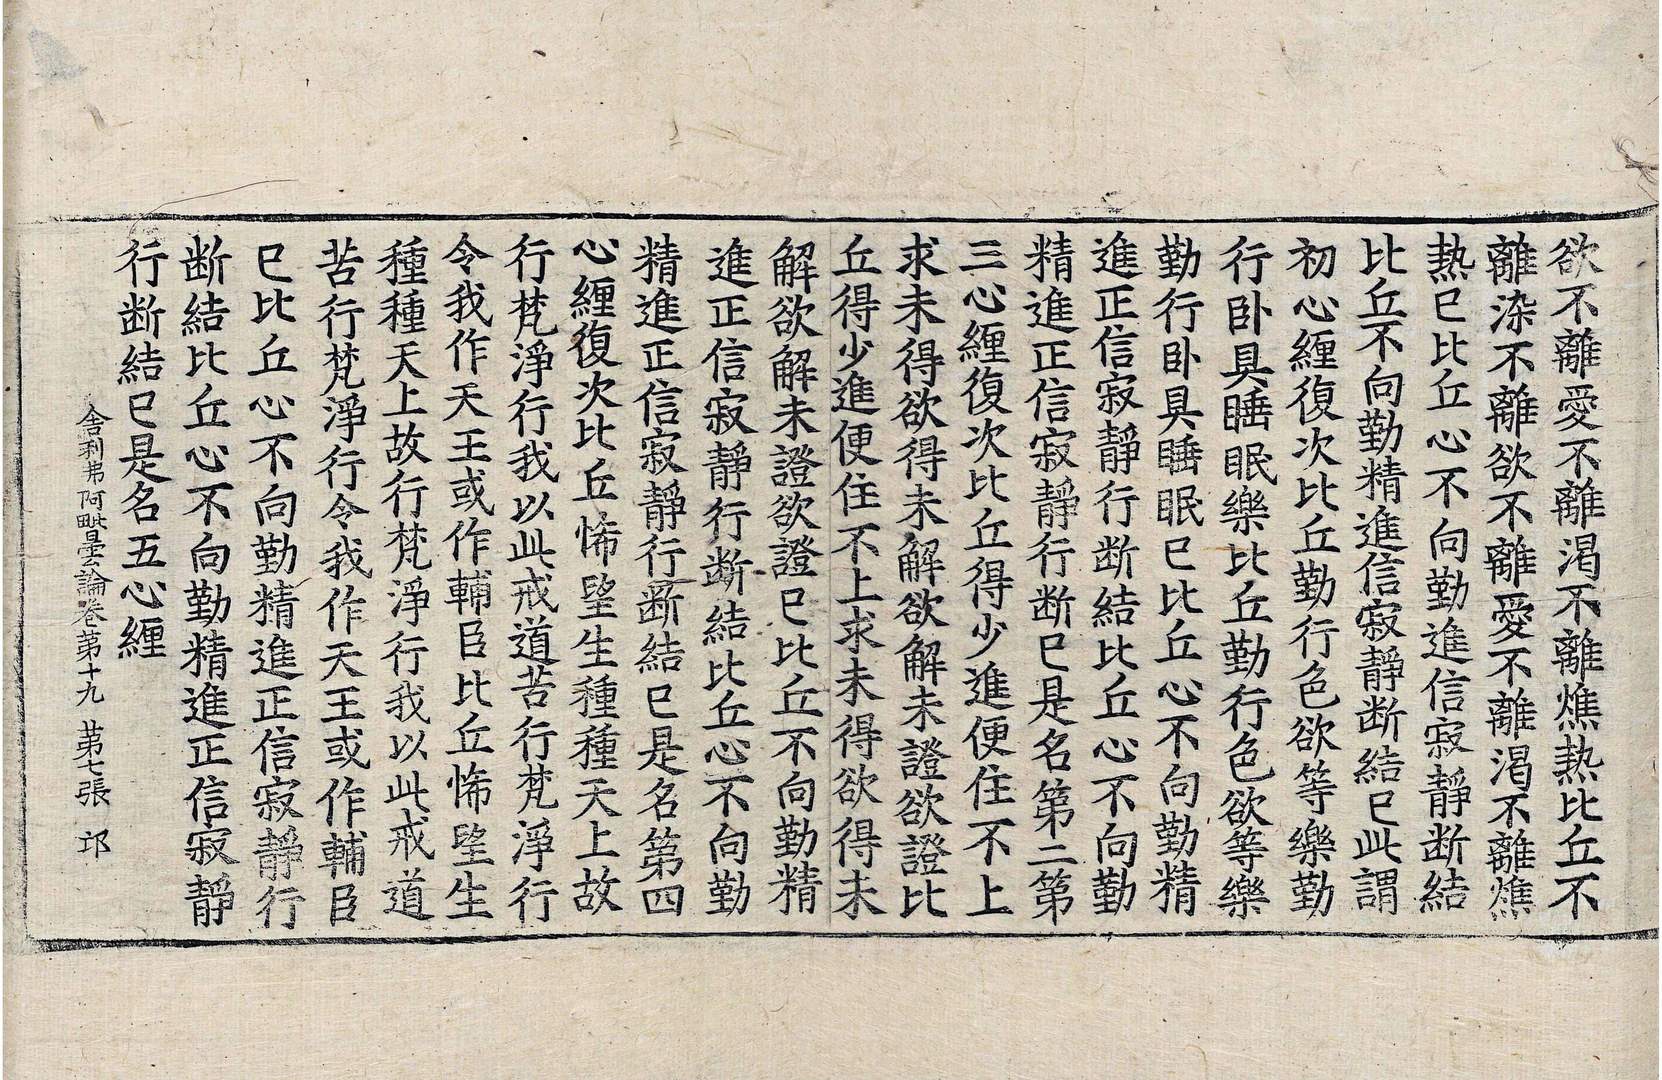 欲不離愛不離渇不離燋熱比丘不
離染不離欲不離愛不離渇不離燋
熱已比丘心不向勤進信寂靜断結
比丘不向勤精進信寂靜断結已此謂
初心纒復次比丘勤行色欲等樂勤
行卧具睡眠樂比丘勤行色欲等樂
勤行卧具睡眠已比丘心不向勤精
進正信寂靜行断結比丘心不向勤
精進正信寂靜行断已是名第二第
三心纒復次比丘得少進便住不上
求未得欲得未解欲解未證欲證比
丘得少進便住不上求未得欲得未
解欲解未證欲證已比丘不向勤精
進正信寂靜行断結比丘心不向勤
精進正信寂靜行断結已是名第四
心纒復次比丘悕望生種種天上故
行梵淨行我以此戒道苦行梵淨行
令我作天王或作輔臣比丘悕望生
種種天上故行梵淨行我以此戒道
苦行梵淨行令我作天王或作輔臣
已比丘心不向勤精進正信寂靜行
断結比丘心不向勤精進正信寂靜
行断結已是名五心纒
舎利弗阿毗曇論卷第十九 苐七張 邙